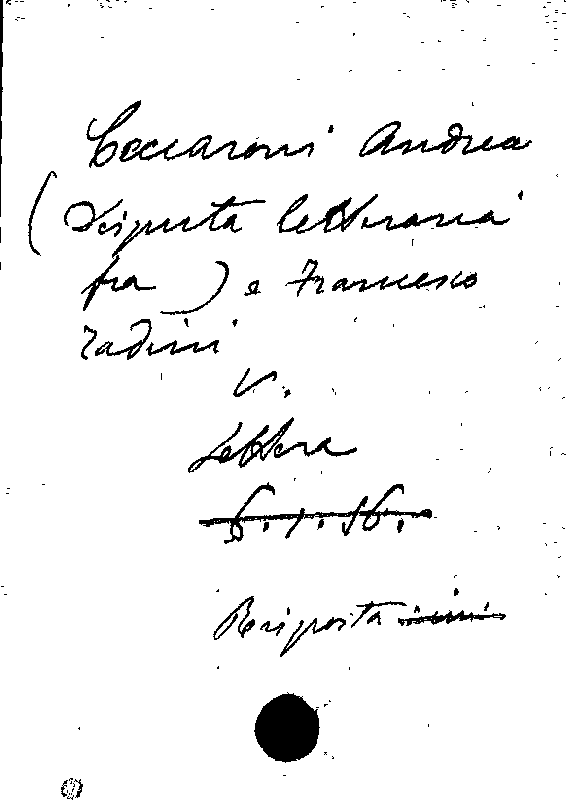 Coccaroni Andrea
(Disputa letteraria
fra ) e Francesco
Zadini
V.
Lettera
6.1.56.
Risposta